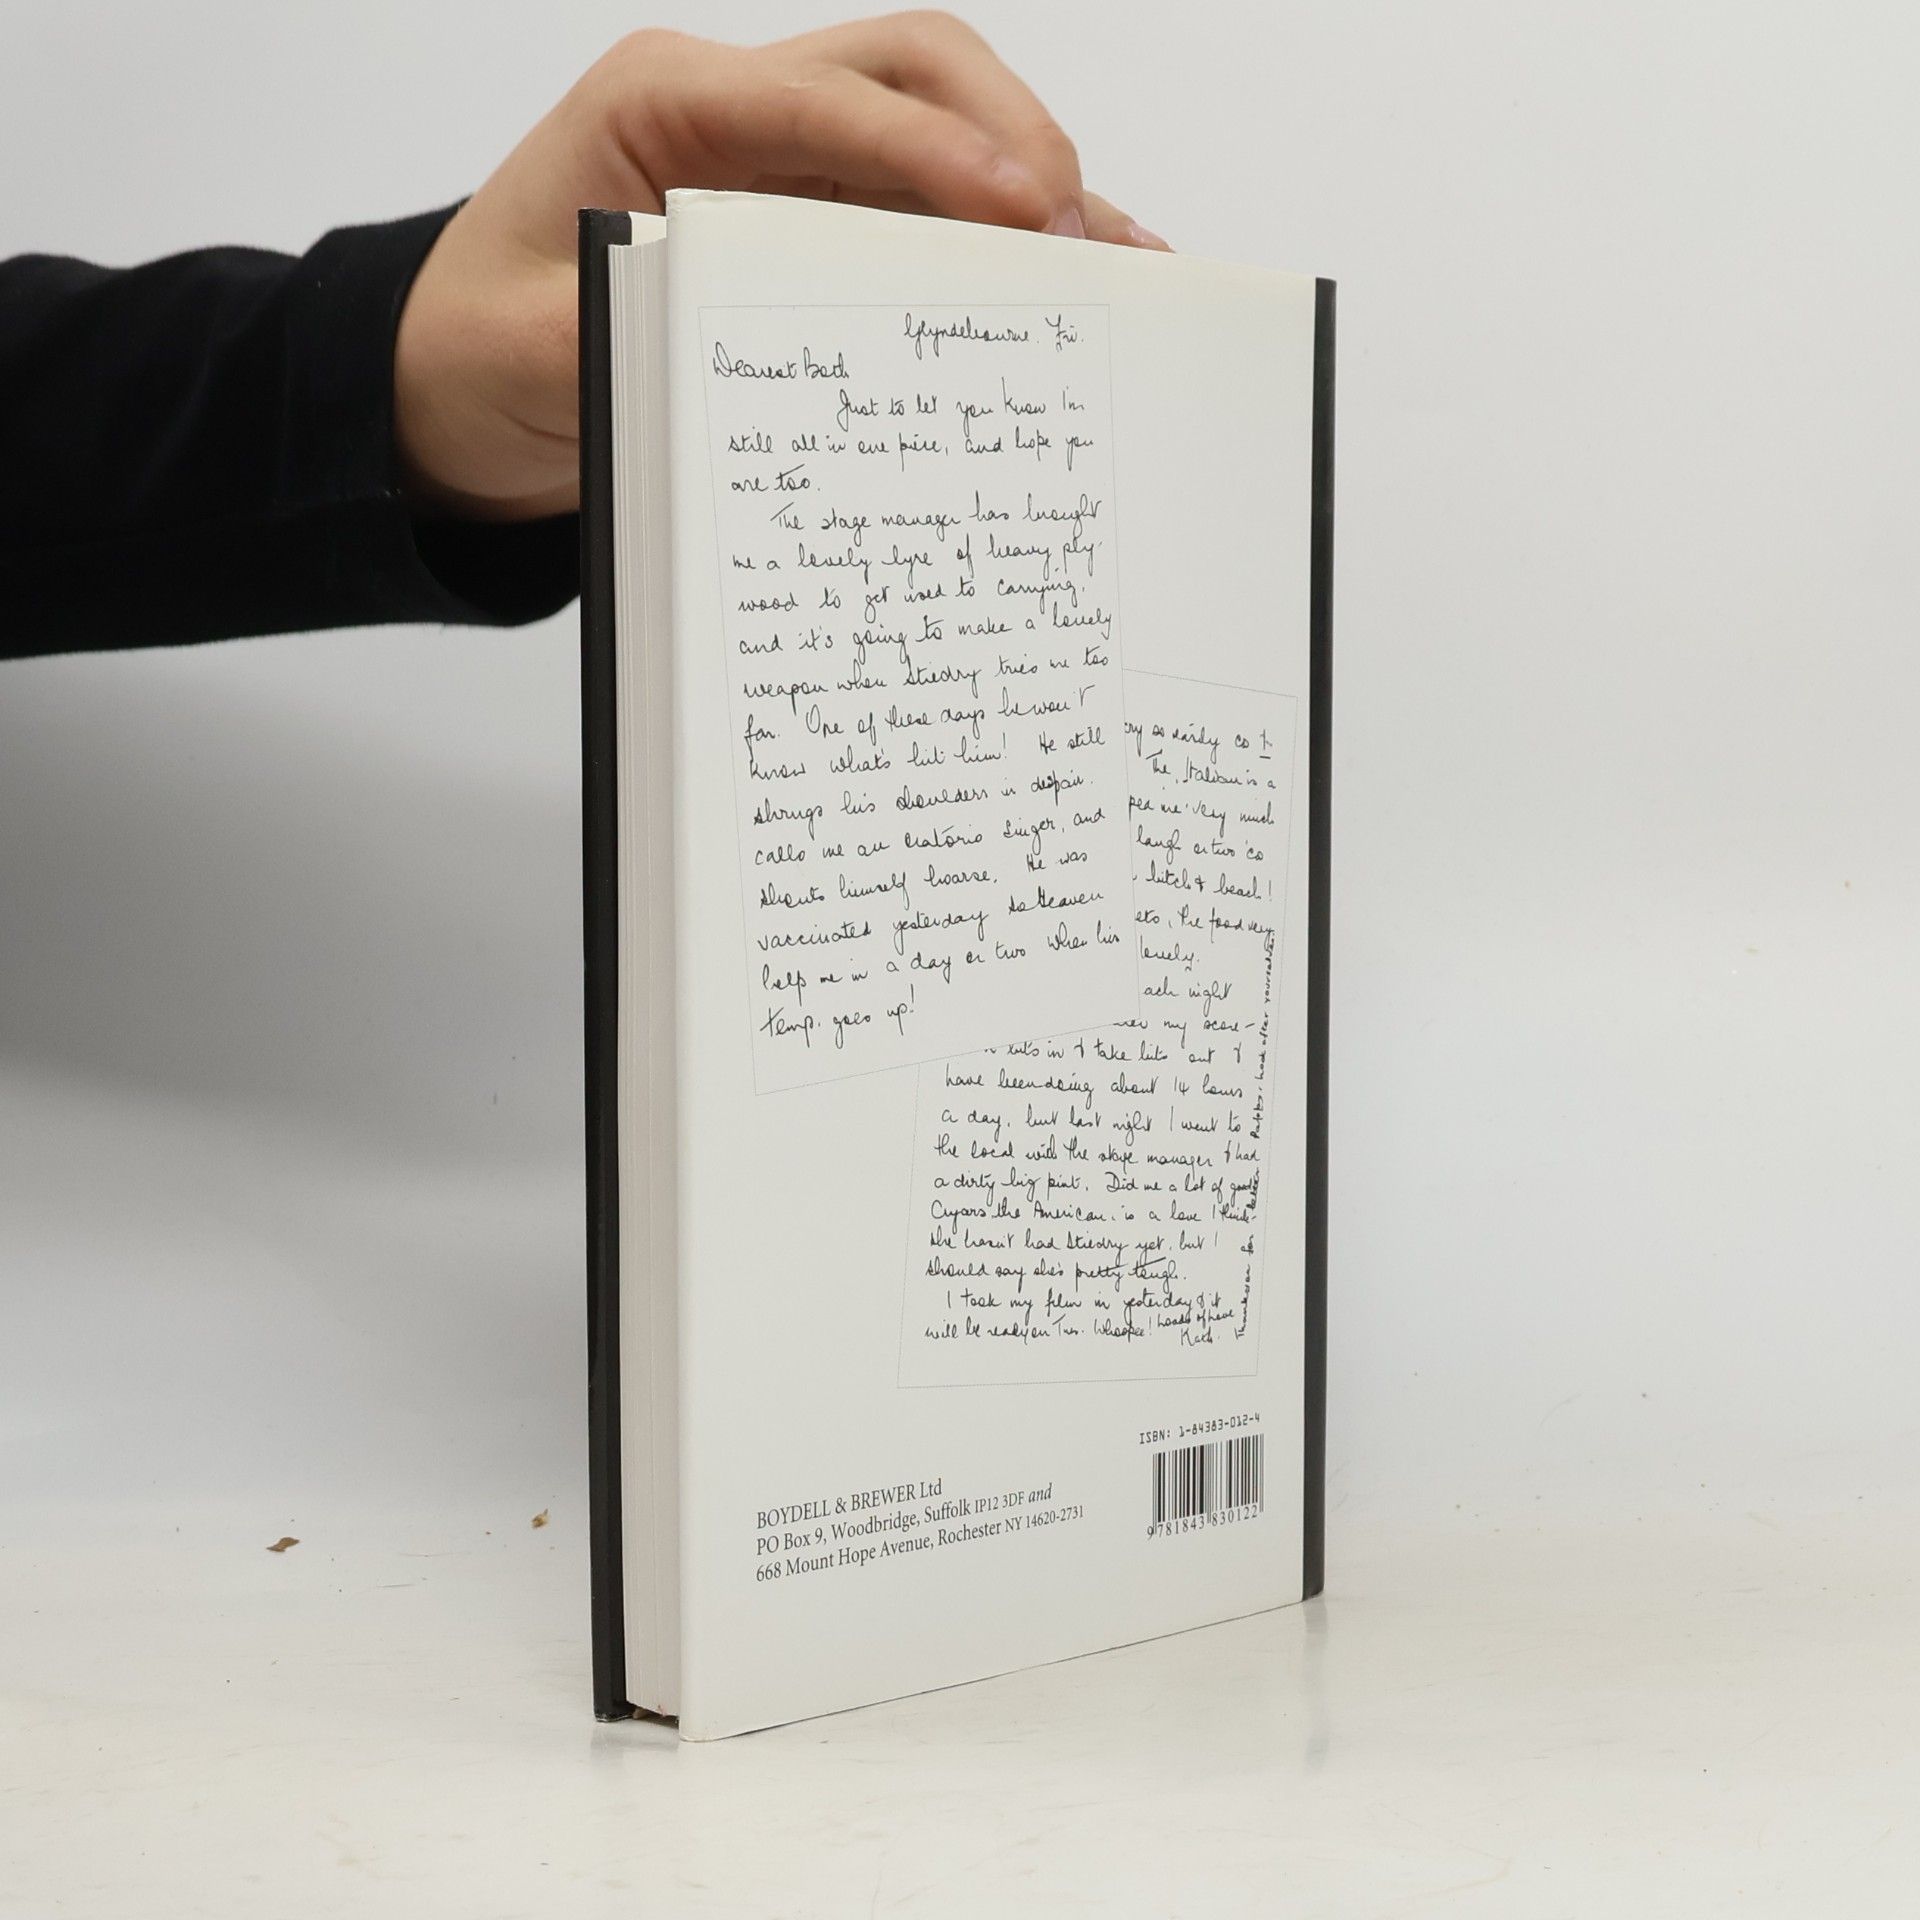 Glyndebourne. Fri.
Dearest
Just to let you know I'm
still all in one piece, and hope you
are too.
The stage manager has brought
me a lovely lyre of heavy ply-
wood to get used to carrying,
and it's going to make a lovely
weapon when Stiedry tries me too
far. One of these days he won't
know what's hit him! He still
shrugs his shoulders in despair.
calls me an oratorio singer, and
shouts himself hoarse. He was
vaccinated yesterday so Heaven
help me in a day or two when his
temp. goes up!
The Italian is a
me very much
laugh or two
bitch & beach!
the food very
lovely.
ach night
my score-
bits in & take bits out &
have been doing about 14 hours
a day, but last night I went to
the local with the stage manager & had
a dirty big pint. Did me a lot of good
Cuyas the American, is a love I think-
she hasn't had Stiedry yet, but I
should say she's pretty tough.
I took my film in yesterday & it
will be ready on Tues. Whoopee! Loads of love
Kath.
Thank you for letter Pabbs, look after yourselves.
ISBN: 1-84383-012-4
9 781843 830122
BOYDELL & BREWER Ltd
PO Box 9, Woodbridge, Suffolk IP12 3DF and
668 Mount Hope Avenue, Rochester NY 14620-2731